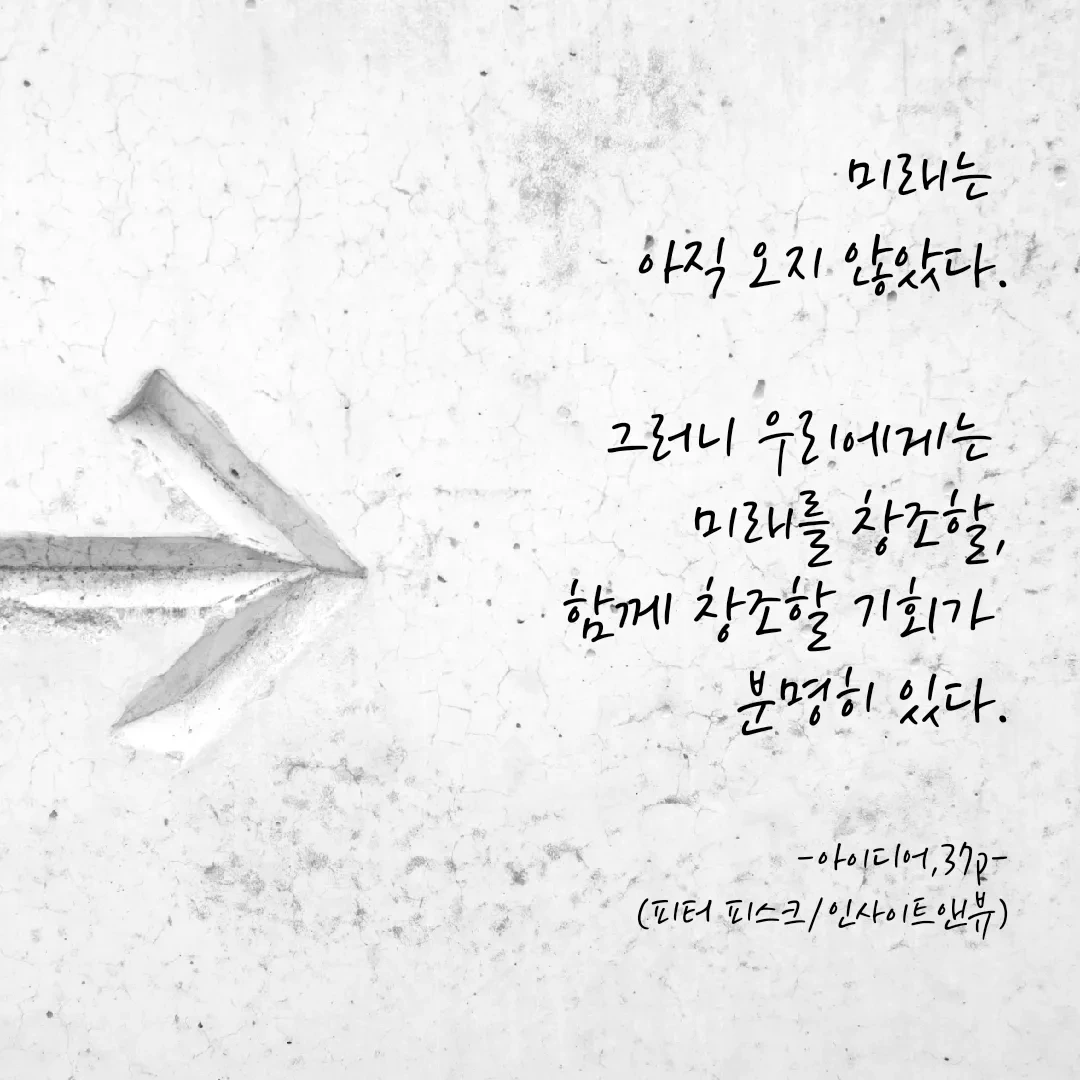 미래는
아직 오지 않았다.
그러니 우리에게는
미래를 창조할,
함께 창조할 기회가
분명히 있다.
-아이디어,37p-
(피터 피스크/인사이트앤뷰)